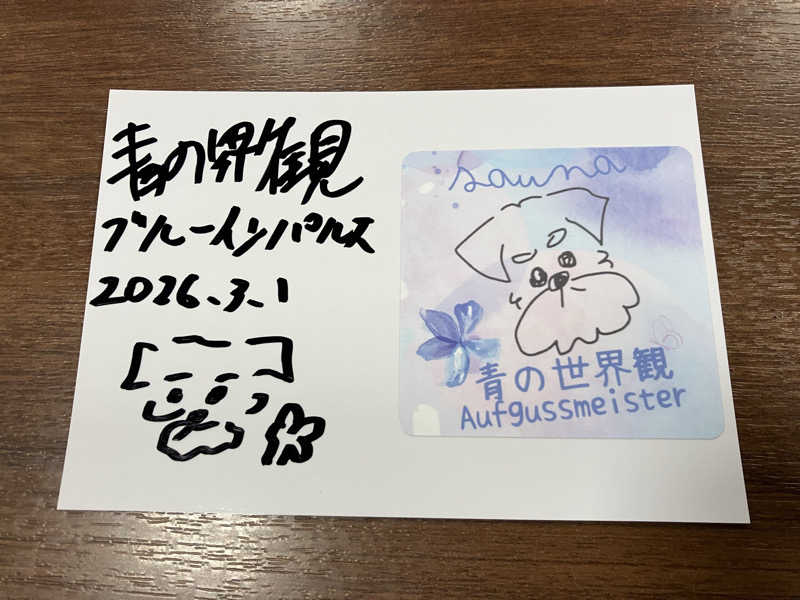 青の界観
ブルーインパルス
2026.3.1
sauna
青の世界観
Aufgussmeister